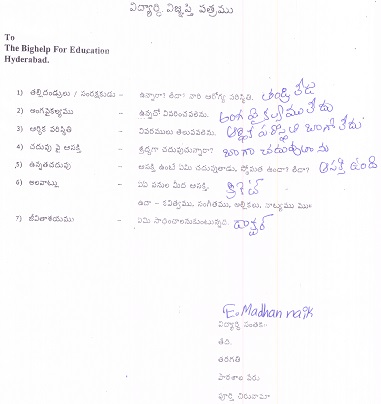 విద్యార్థి విజ్ఞప్తి పత్రము
To
The Bighelp For Education
Hyderabad.
1) తల్లిదండ్రులు / సంరక్షకుడు – ఉన్నారా? లేదా? వారి ఆరోగ్య పరిస్థితి. తండ్రి లేడు
2) అంగవైకల్యము – ఉన్నదో వివరించవలెను. అంగవైకల్యము లేదు
3) ఆర్థిక పరిస్థితి – వివరములు తెలుపవలెను. ఆర్థిక పరిస్థితి బాగా లేదు
4) చదువు పై ఆసక్తి – శ్రద్ధగా చదువుచున్నారా? బాగా చదువుతాను
5) ఉన్నతచదువు – ఆసక్తి ఉంటే ఏమి చదువుతాడు, స్తోమత ఉందా? లేదా? ఆసక్తి ఉంది
6) అలవాట్లు – ఏఏ పనుల మీద ఆసక్తి. క్రికెట్
ఉదా – కవిత్వము, సంగీతము, అల్లికలు, నాట్యము
7) జీవితాశయము – ఏమి సాధించాలనుకుంటున్నాడు. డాక్టర్
E. Madhan naik
విద్యార్థి సంతకం
తేది.
తరగతి
పాఠశాల పేరు
పూర్తి చిరునామా